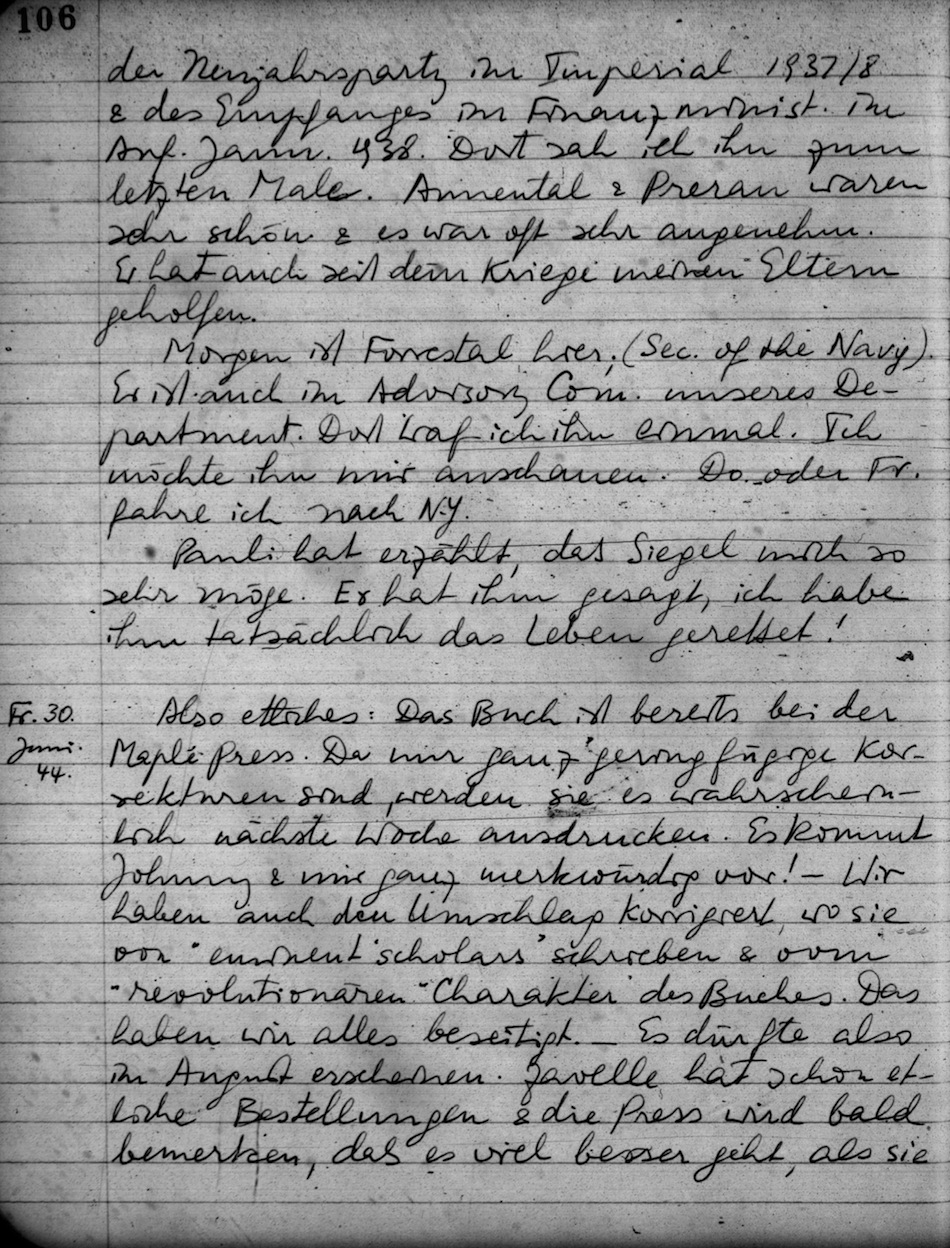 106
der Neujahrsparty im Imperial 1937/8
& des Empfanges im Finanzminist. im
Anf. Jann. 938. Dort sah ich ihn zum
letzten Male. Annental & Prerau waren
sehr schön & es war oft sehr angenehm.
Er hat auch seit dem Kriege meinen Eltern
geholfen.
Morgen ist Forrestal hier, (Sec. of the Navy).
Er ist auch im Advisory Com. unseres De-
partment. Dort traf ich ihn einmal. Ich
möchte ihn mir anschauen. Do. oder Fr.
fahre ich nach N.Y.
Pauli hat erzählt, daß Siegel mich so
sehr möge. Er hat ihm gesagt, ich habe
ihm tatsächlich das Leben gerettet!
Fr. 30.
Juni.
44.
Also etliches: Das Buch ist bereits bei der
Maple Press. Da nur ganz geringfügige Kor-
rekturen sind, werden sie es wahrschein-
lich nächste Woche ausdrucken. Es kommt
Johnny & mir ganz merkwürdig vor! – Wir
haben auch den Umschlag korrigiert, wo sie
von "eminent scholars" schrieben & vom
"revolutionären" Charakter des Buches. Das
haben wir alles beseitigt. – Es dürfte also
im August erscheinen. Zavelle hat schon et-
liche Bestellungen & die Press wird bald
bemerken, daß es viel besser geht, als sie